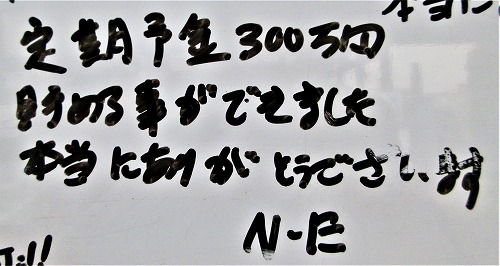 本当に
定期予金300万円
貯める事ができました
本当にありがとうございます
N-E
!!